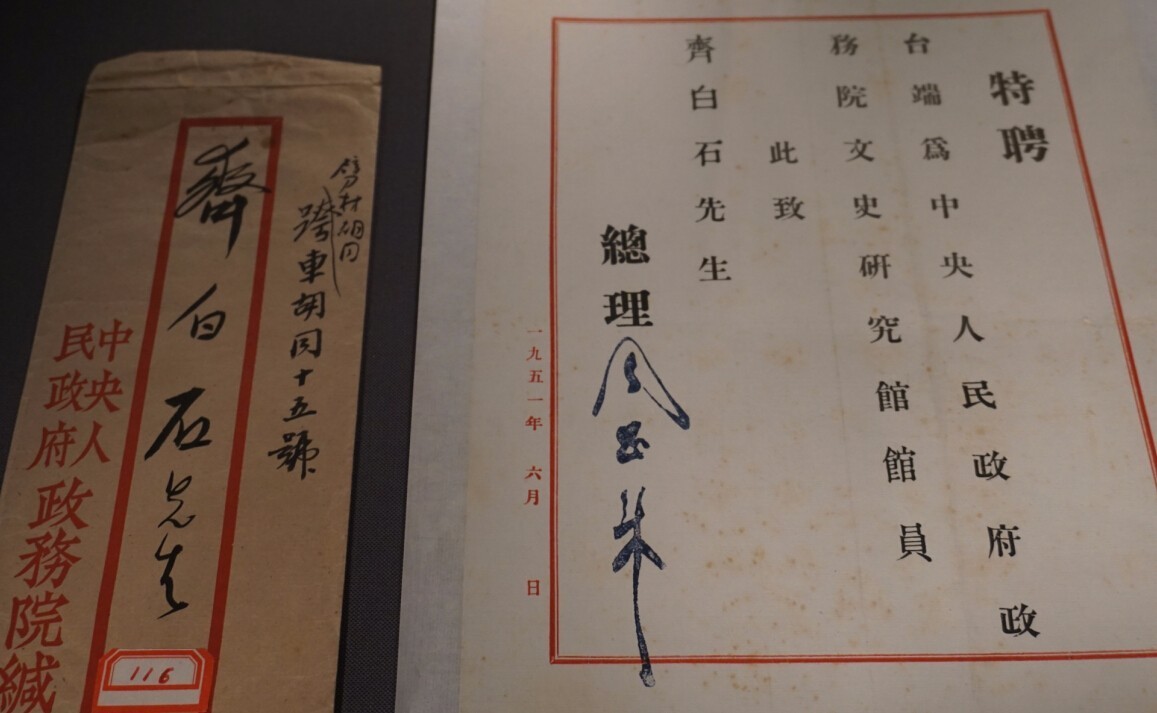 特聘
台端爲中央人民政府政
務院文史研究館館員
此致
齊白石先生
總理周恩来
一九五一年 六月 日
劈材胡同
跨車胡同十五號
齊白石先生
中央人
民政府
政務院緘
116